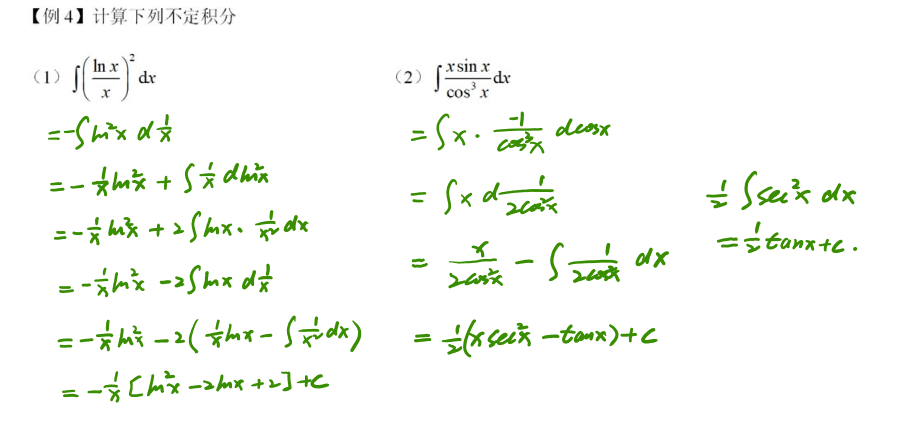 【例 4】计算下列不定积分
(1) ∫(ln x / x)² dx
= -∫ln²x d 1/x
= -1/x ln²x + ∫1/x dln²x
= -1/x ln²x + 2∫lnx · 1/x² dx
= -1/x ln²x - 2∫lnx d 1/x
= -1/x ln²x - 2(1/x lnx - ∫1/x² dx)
= -1/x [ln²x - 2lnx + 2] + c
(2) ∫ x sin x / cos³ x dx
= ∫x · -1/cos³x dcosx
= ∫x d 1/2cos²x
= x/2cos²x - ∫1/2cos²x dx
= 1/2(x sec²x - tanx) + c
1/2 ∫sec²x dx
= 1/2 tanx + c.